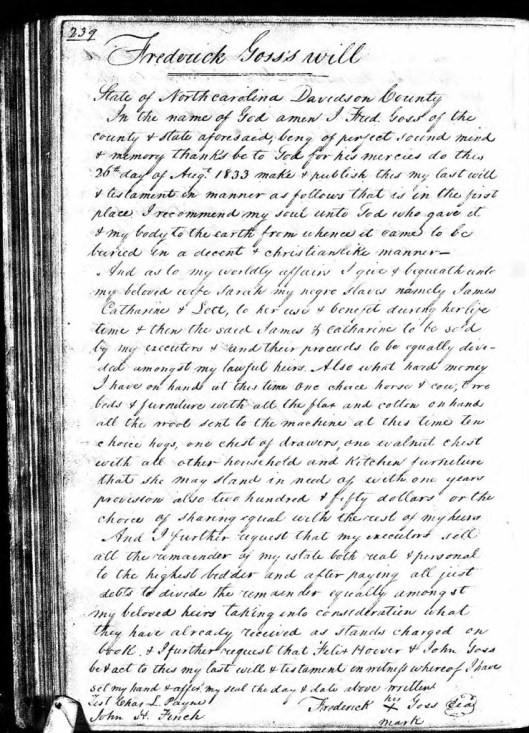 239
Frederick Goss's will
State of North carolina Davidson County
In the name of God amen I Fred Goss of the
county & state aforesaid, being of perfect sound mind
& memory thanks be to God for his mercies do this
26th day of Augt. 1833 make & publish this my last will
& testament in manner as follows that is in the first
place I recommend my soul unto God who gave it
& my body to the earth from whence it came to be
buried in a decent & christianlike manner—
And as to my worldly affairs I give & bequeath unto
my beloved wife Sarah my negro slaves namely James
Catharine & Lott, to her use & benefit during her life
time & then the said James & catharine to be sold
by my executors & and their proceeds to be equally divi-
ded amongst my lawful heirs. Also what hard money
I have on hand at this time One choice horse & cow, two
beds & furniture with all the flax and cotton on hand
all the wool sent to the machine at this time ten
choice hogs, one chest of drawers, one walnut chest
with all other household and Kitchen furniture
that she may stand in need of with one years
provision also two hundred & fifty dollars or the
choice of sharing equal with the rest of my heirs
And I further request that my executors sell
all the remainder of my estate both real & personal
to the highest bidder and after paying all just
debts to divide the remainder equally amongst
my beloved heirs taking into consideration what
they have already received as stands charged on
book, & I further request that Felix Hoover & John Goss
be & act to this my last will & testament in witness whereof I have
set my hand & affix my seal the day & date above written
Test Chas. L. Payne
John H. Finch
Frederick his X mark Goss Seal